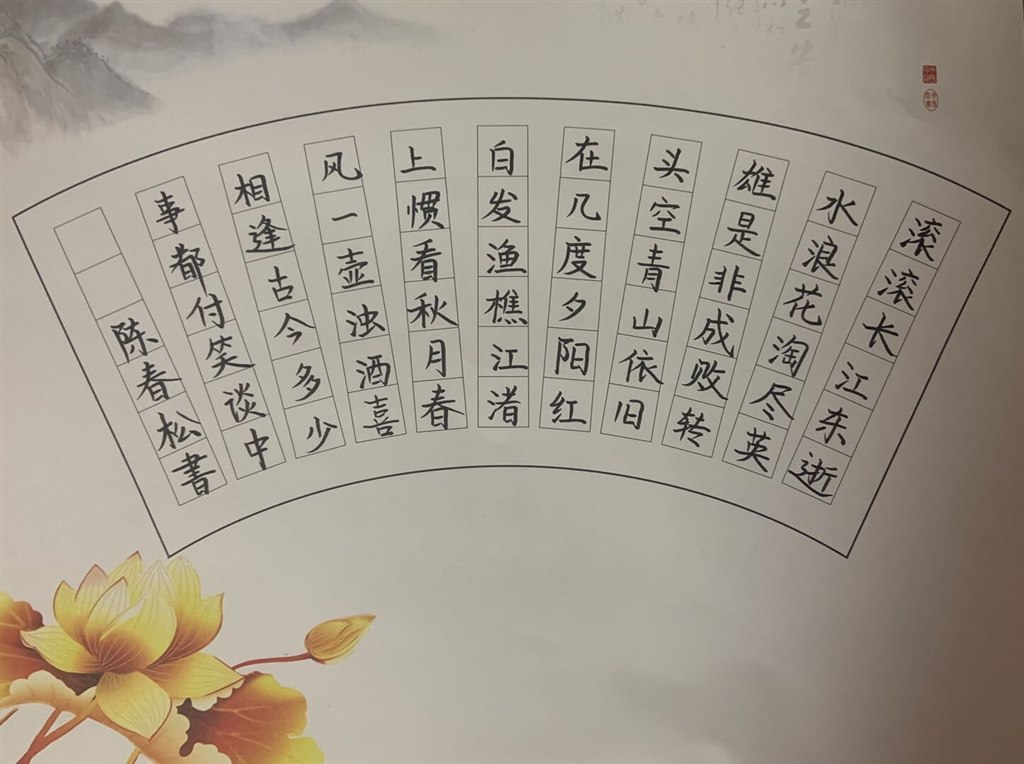 滚滚长江东逝
水浪花淘尽英
雄是非成败转
头空青山依旧
在几度夕阳红
白发渔樵江渚
上惯看秋月春
风一壶浊酒喜
相逢古今多少
事都付笑谈中
陈春松書